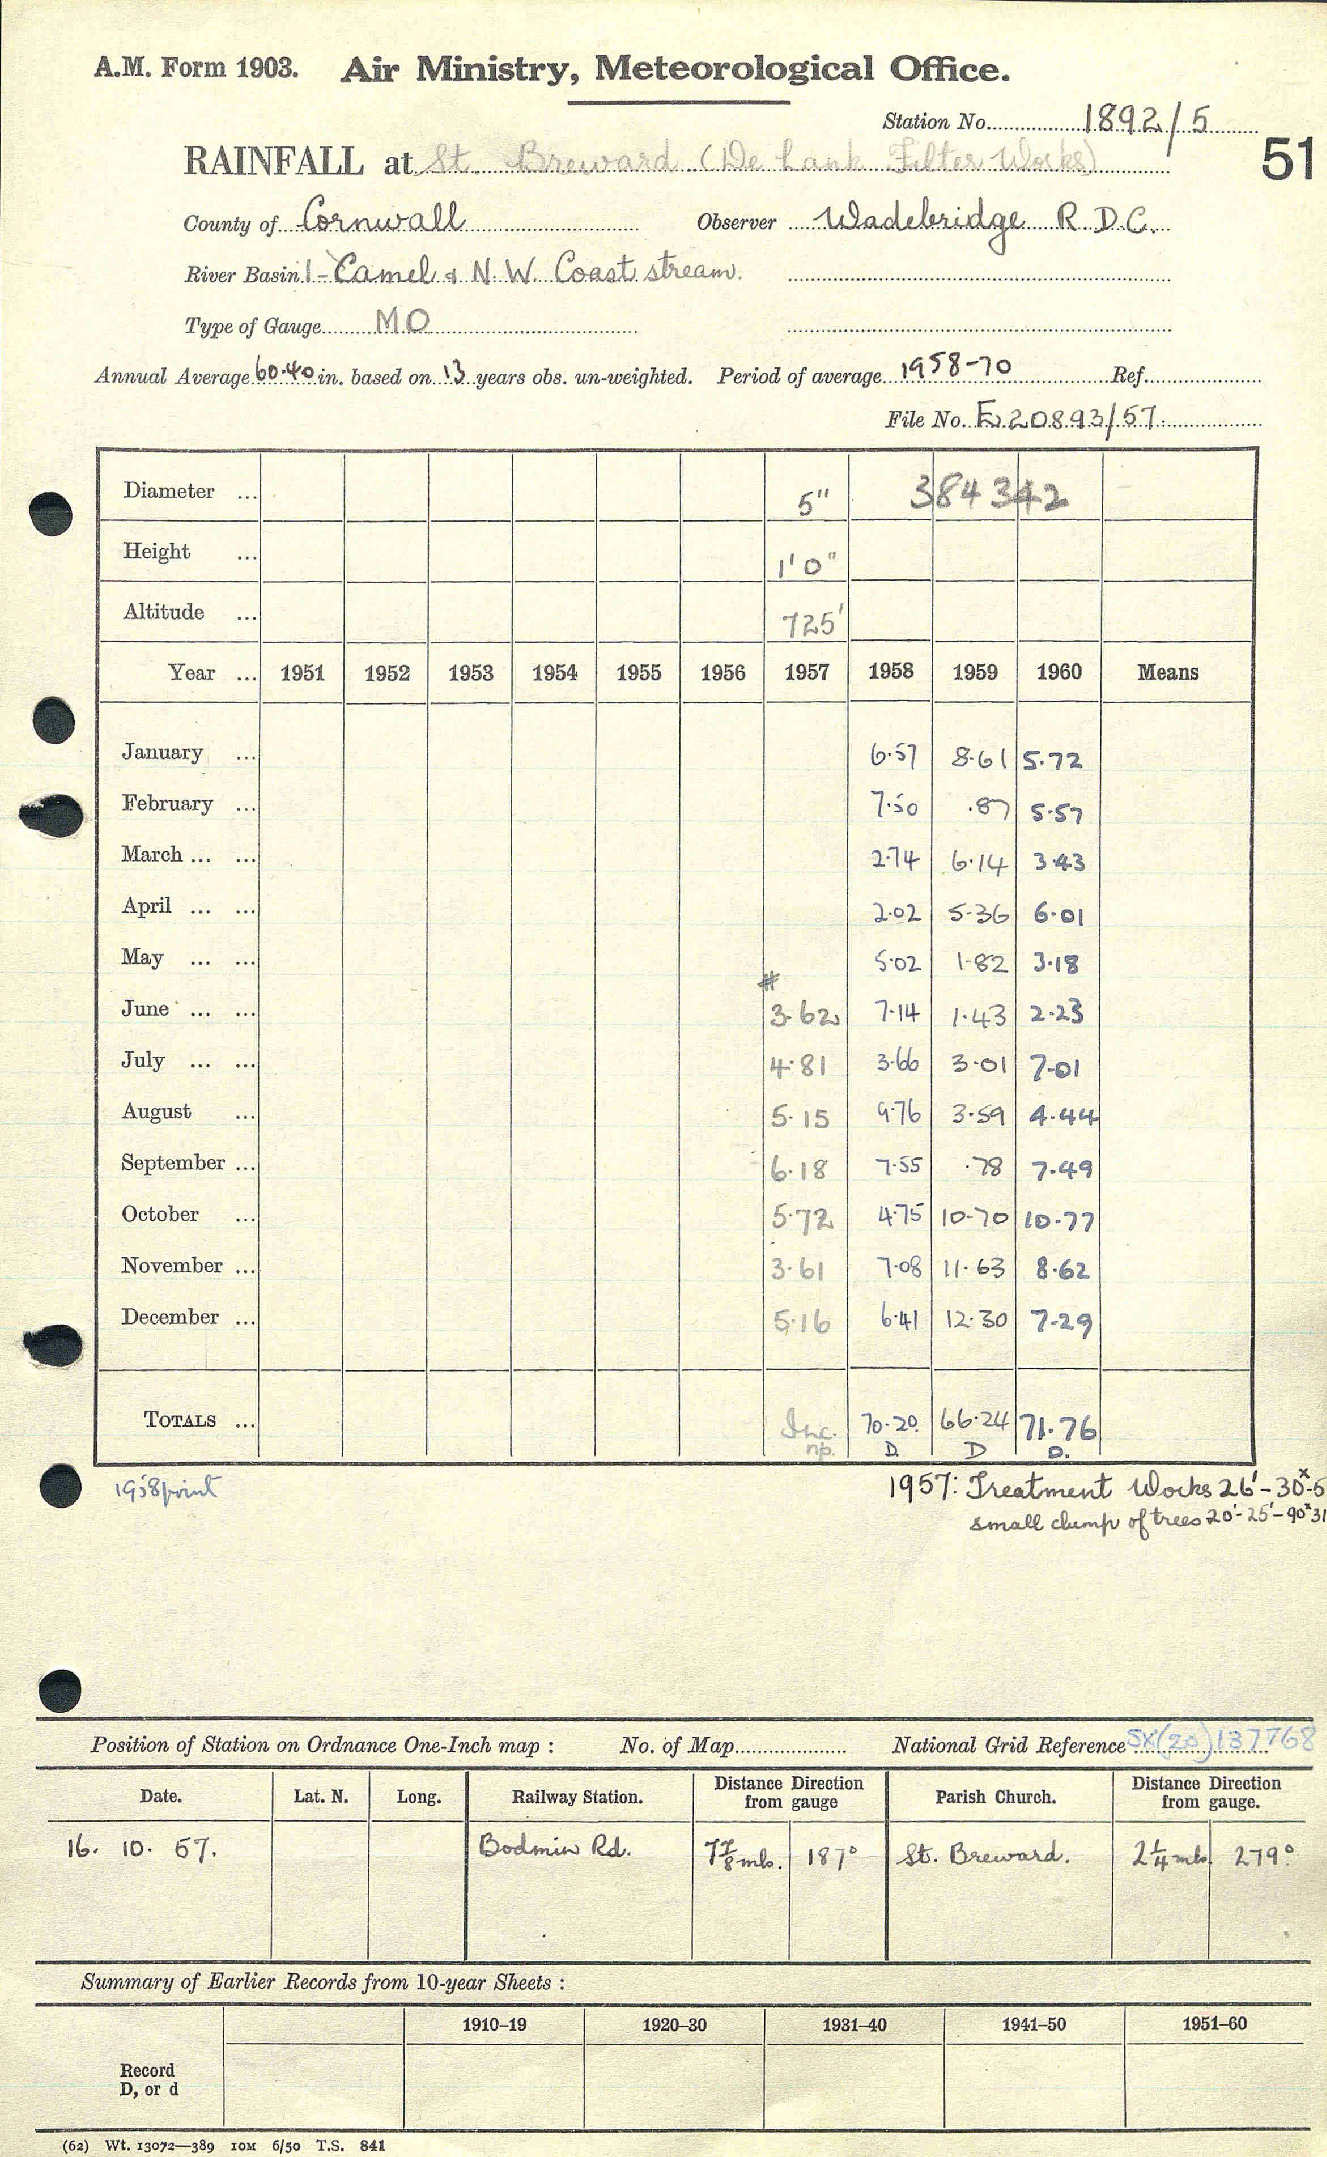 A.M. Form 1903. Air Ministry, Meteorological Office.
Station No. 1892/5
51
RAINFALL at St. Breward (De Lank Filter Works)
County of Cornwall Observer Wadebridge R.D.C.
River Basin 1-Camel & N.W. Coast stream.
Type of Gauge MO
Annual Average 60.40 in. based on 13 years obs. un-weighted. Period of average 1958-70 Ref.
File No. E.20893/57
Diameter ... 5" 384342
Height ... 1'0"
Altitude ... 725'
Year ... 1951 1952 1953 1954 1955 1956 1957 1958 1959 1960 Means
January ... 6.57 8.61 5.72
February ... 7.50 .87 5.57
March ... ... 2.74 6.14 3.43
April ... ... 2.02 5.36 6.01
May ... ... 5.02 1.82 3.18
#
June ... ... 3.62 7.14 1.43 2.23
July ... ... 4.81 3.66 3.01 7.01
August ... 5.15 9.76 3.59 4.44
September ... 6.18 7.55 .78 7.49
October ... 5.72 4.75 10.70 10.77
November ... 3.61 7.08 11.63 8.62
December ... 5.16 6.41 12.30 7.29
TOTALS ... Inc. 70.20 66.24 71.76
np. D. D D.
1958 point
1957: Treatment Works 26'-30x-5
small clump of trees 20'-25'-90x31
Position of Station on Ordnance One-Inch map : No. of Map National Grid Reference SX(20)137768
Date. Lat. N. Long. Railway Station. Distance Direction from gauge Parish Church. Distance Direction from gauge.
16. 10. 57. Bodmin Rd. 7⅞ mls. 187° St. Breward. 2¼ mls. 279°
Summary of Earlier Records from 10-year Sheets :
1910–19 1920–30 1931–40 1941–50 1951–60
Record
D, or d
(62) Wt. 13072—389 10M 6/50 T.S. 841